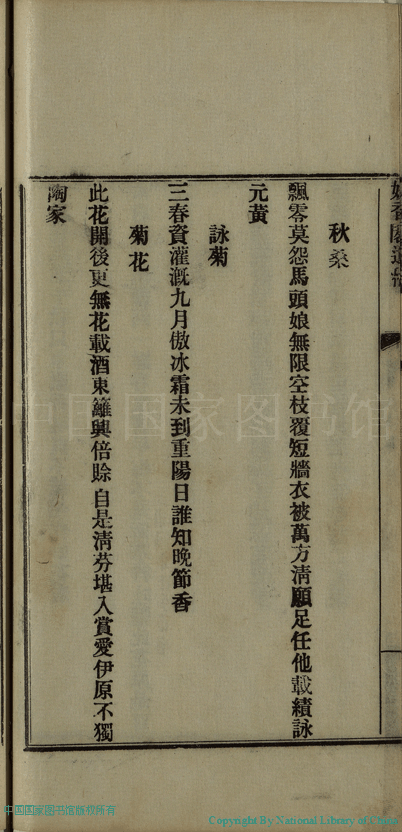 秋桑
飄零莫怨馬頭娘無限空枝覆短牆衣被萬方清願足任他載績詠
元黃
詠菊
三春資灌漑九月傲冰霜未到重陽日誰知晚節香
菊花
此花開後更無花載酒東籬興倍賒自是淸芬堪入賞愛伊原不獨
陶家
中国国家图书馆
中国国家图书馆版权所有
Copyright By National Library of China